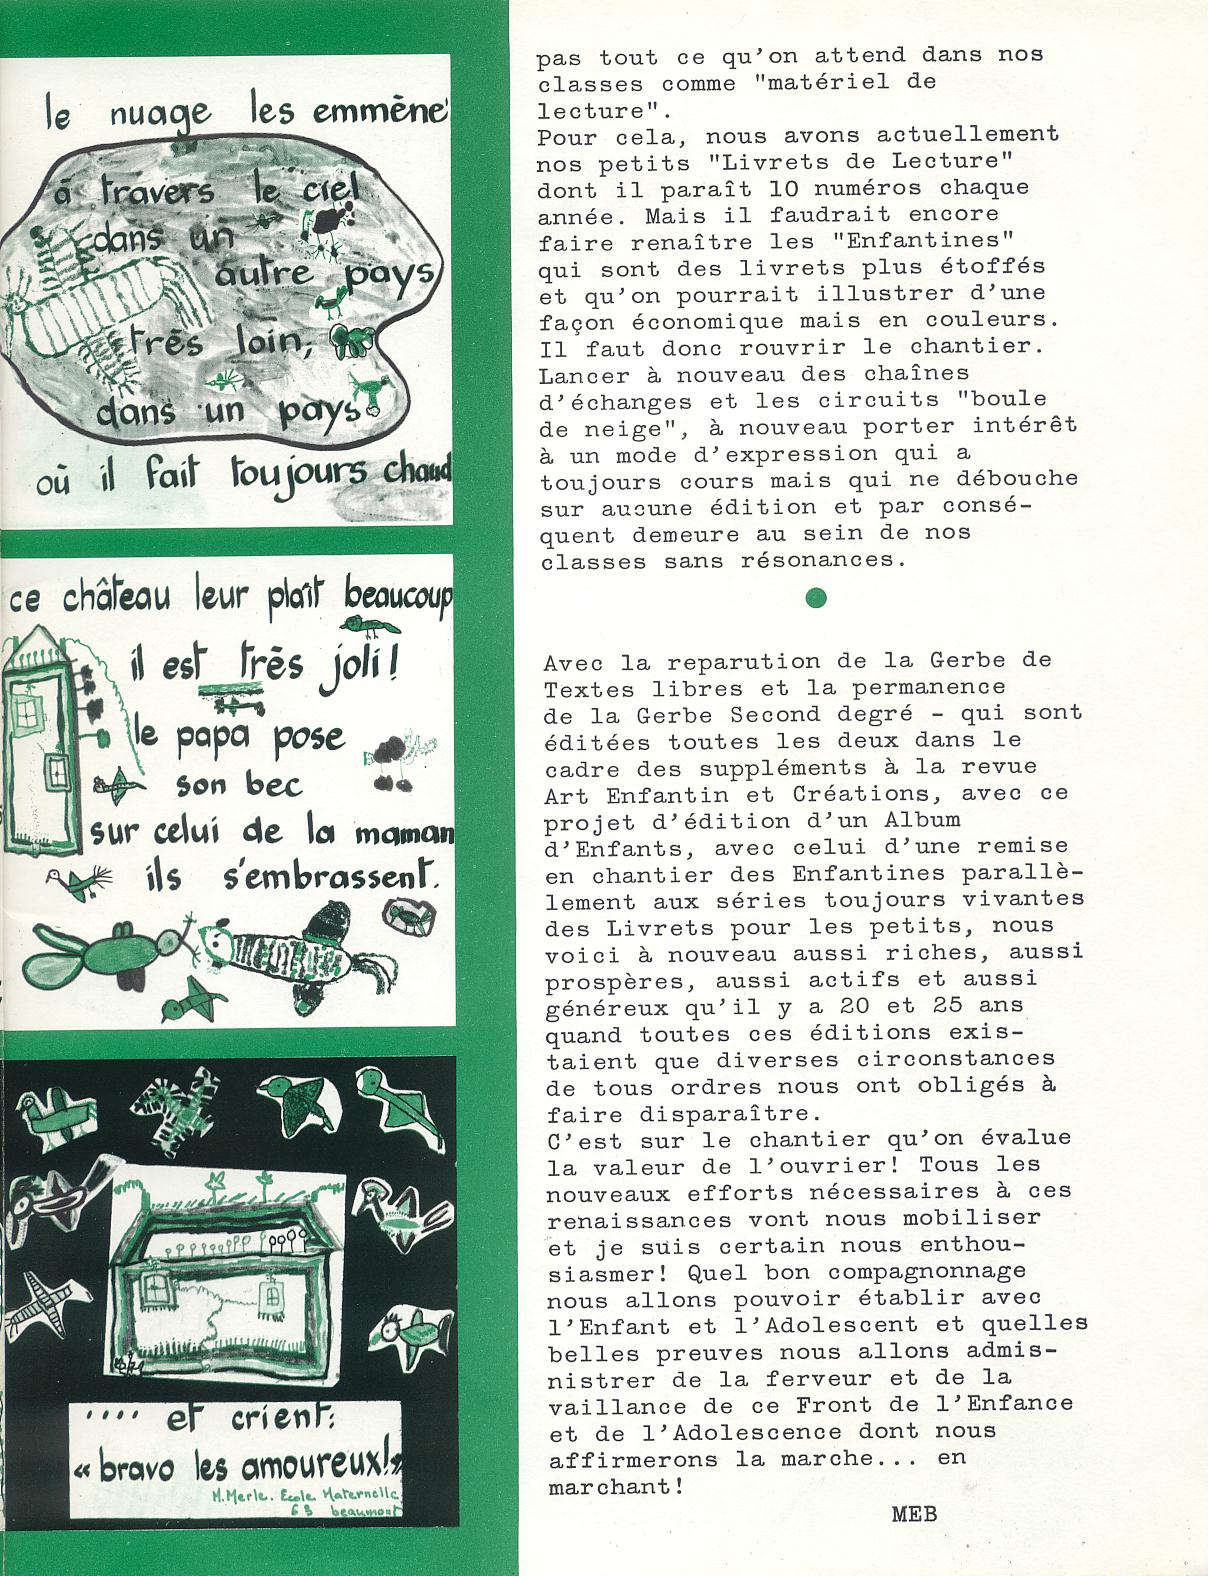 le nuage les emmène
à travers le ciel
dans un
autre pays
très loin,
dans un pays
où il fait toujours chaud
ce château leur plaît beaucoup
il est très joli!
le papa pose
son bec
sur celui de la maman
ils s'embrassent.
.... et crient:
« bravo les amoureux!»
M.Merle. Ecole Maternelle
63 beaumont
pas tout ce qu'on attend dans nos
classes comme "matériel de
lecture".
Pour cela, nous avons actuellement
nos petits "Livrets de Lecture"
dont il paraît 10 numéros chaque
année. Mais il faudrait encore
faire renaître les "Enfantines"
qui sont des livrets plus étoffés
et qu'on pourrait illustrer d'une
façon économique mais en couleurs.
Il faut donc rouvrir le chantier.
Lancer à nouveau des chaînes
d'échanges et les circuits "boule
de neige", à nouveau porter intérêt
à un mode d'expression qui a
toujours cours mais qui ne débouche
sur aucune édition et par consé-
quent demeure au sein de nos
classes sans résonances.
Avec la reparution de la Gerbe de
Textes libres et la permanence
de la Gerbe Second degré - qui sont
éditées toutes les deux dans le
cadre des suppléments à la revue
Art Enfantin et Créations, avec ce
projet d'édition d'un Album
d'Enfants, avec celui d'une remise
en chantier des Enfantines parallè-
lement aux séries toujours vivantes
des Livrets pour les petits, nous
voici à nouveau aussi riches, aussi
prospères, aussi actifs et aussi
généreux qu'il y a 20 et 25 ans
quand toutes ces éditions exis-
taient que diverses circonstances
de tous ordres nous ont obligés à
faire disparaître.
C'est sur le chantier qu'on évalue
la valeur de l'ouvrier! Tous les
nouveaux efforts nécessaires à ces
renaissances vont nous mobiliser
et je suis certain nous enthou-
siasmer! Quel bon compagnonnage
nous allons pouvoir établir avec
l'Enfant et l'Adolescent et quelles
belles preuves nous allons admis-
nistrer de la ferveur et de la
vaillance de ce Front de l'Enfance
et de l'Adolescence dont nous
affirmerons la marche... en
marchant!
MEB